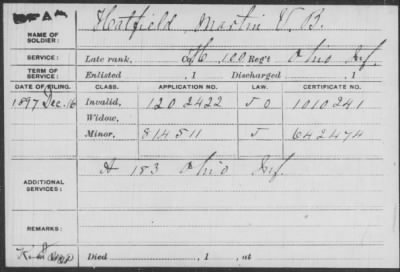 Hatfield Martin V. B.
NAME OF SOLDIER:
SERVICE: Late rank, Co. H. 100 Reg't Ohio Inf.
TERM OF SERVICE: Enlisted , 1 Discharged , 1
DATE OF FILING. CLASS. APPLICATION NO. LAW. CERTIFICATE NO.
1897 Dec. 16 Invalid, 1202422 1010241
Widow,
Minor, 814511 642474
ADDITIONAL SERVICES: A 183 Ohio Inf.
REMARKS:
Died , 1 , at